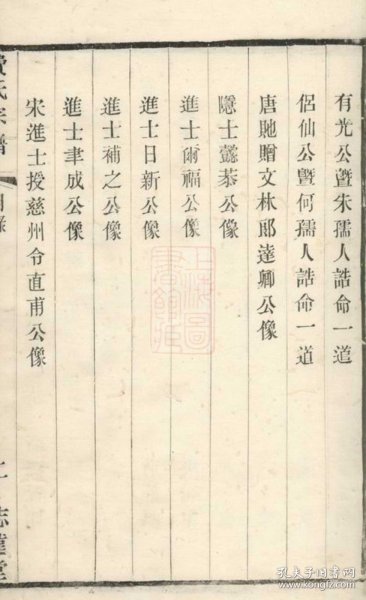 有光公暨朱孺人誥命一道
侶仙公暨何孺人誥命一道
唐貤贈文林郎達卿公像
隱士懿恭公像
進士爾福公像
進士日新公像
進士補之公像
進士聿成公像
宋進士授慈州令直甫公像
氏宗譜
目錄
二
孔夫子旧书网